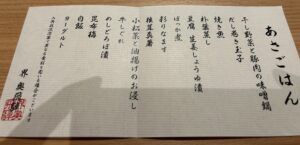 あさごはん
干し野菜と豚肉の味噌鍋
だし巻き玉子
焼き魚
朴葉蒸し
豆腐 生姜しょうゆ漬
ぽっか煮
彩りなます
椎茸真薯
小松菜と油揚げのお浸し
牛しぐれ
めしどろぼ漬
昆布梅
白飯
ヨーグルト